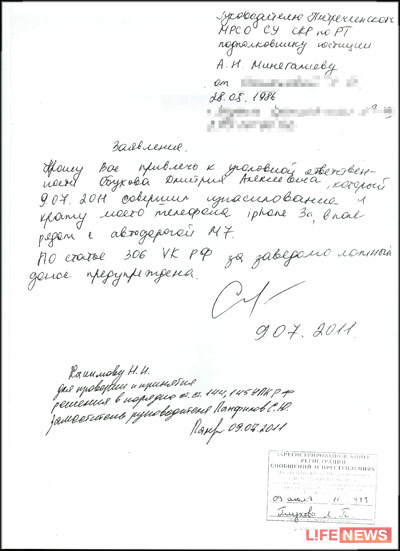 Руководителю
МРСО СУ СКР по РТ
подполковнику юстиции
А.Н. Минегалиеву
от
28.05.1986
Заявление.
Прошу Вас привлечь к уголовной ответствен-
ности Обухова Дмитрия Алексеевича, который
9.07.2011 совершил изнасилование и
кражу моего телефона iphone 3G, в поле
рядом с автодорогой М7.
По статье 306 УК РФ за заведомо ложный
донос предупреждена.
9 07. 2011.
Хашимову Н.И.
для проверки и принятия
решения в порядке ст.ст. 144, 145 УПК РФ
заместитель руководителя Панфилов С.Ю.
09.07.2011
ЗАРЕГИСТРИРОВАНО В КНИГЕ
РЕГИСТРАЦИИ
СООБЩЕНИЙ О ПРЕСТУПЛЕНИЯХ
09 июля 11
LIFENEWS